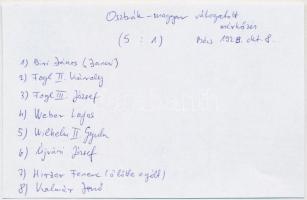 Osztrák-magyar válogatott
mérkőzés
(5 : 1) Bécs 1928. okt. 8.
1) Biri János (Jancsi)
2) Fogl II. Károly
3) Fogl III. József
4) Weber Lajos
5) Wilhelm II Gyula
6) Ujvári József
7) Hirzer Ferenc
8) Kalmár Jenő